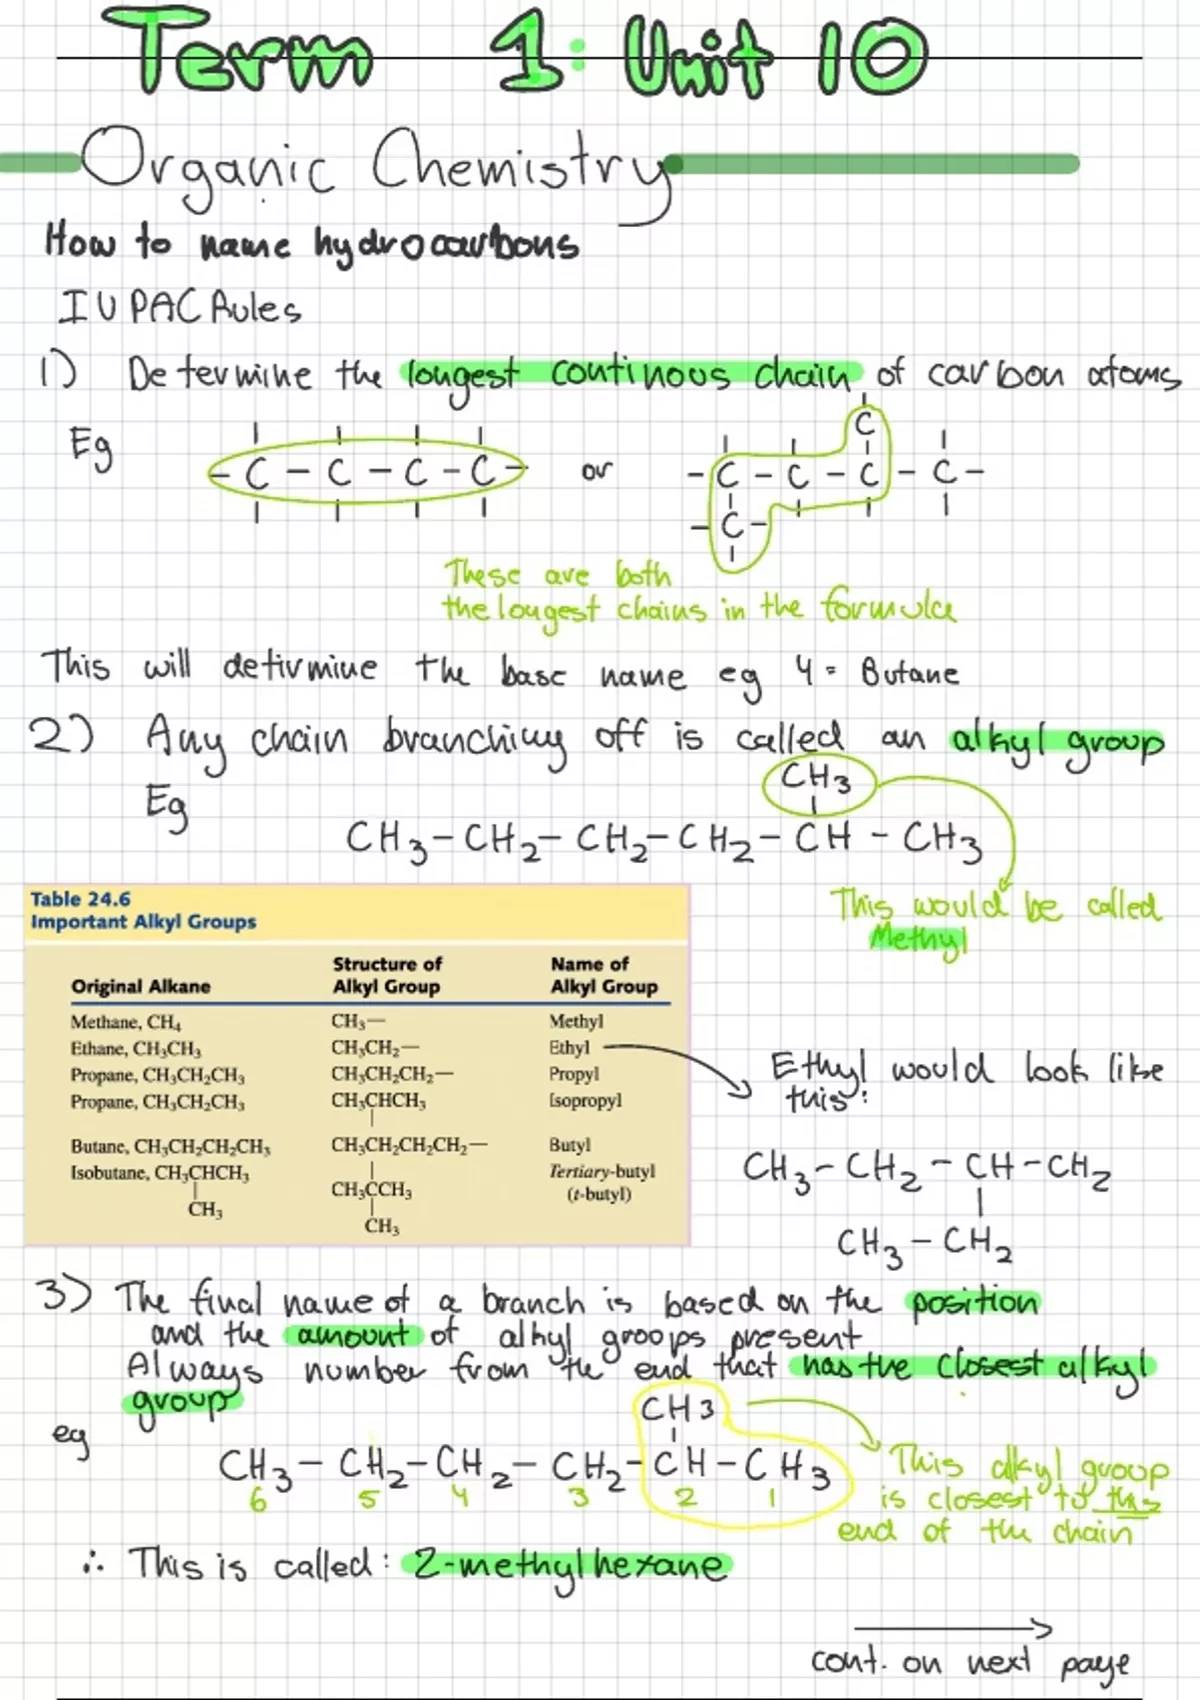 Term 1: Unit 10
Organic Chemistry
How to name hydrocarbons
IUPAC Rules
1) Determine the longest continous chain of carbon atoms
Eg
C
- C - C - C - C - or - C - C - C - C -
- C -
These are both
the longest chains in the formula
This will detirmine the base name eg 4 = Butane
2) Any chain branching off is called an alkyl group
Eg
CH3
CH3 - CH2 - CH2 - CH2 - CH - CH3
This would be called
Methyl
Table 24.6
Important Alkyl Groups
Original Alkane Structure of Alkyl Group Name of Alkyl Group
Methane, CH4 CH3— Methyl
Ethane, CH3CH3 CH3CH2— Ethyl
Propane, CH3CH2CH3 CH3CH2CH2— Propyl
Propane, CH3CH2CH3 CH3CHCH3 Isopropyl
Butane, CH3CH2CH2CH3 CH3CH2CH2CH2— Butyl
Isobutane, CH3CHCH3 CH3CCH3 Tertiary-butyl
(t-butyl)
CH3 CH3
Ethyl would look like
this:
CH3 - CH2 - CH - CH2
CH3 - CH2
3) The final name of a branch is based on the position
and the amount of alkyl groops present
Always number from the end that has the closest alkyl
group
eg
CH3
CH3 - CH2 - CH2 - CH2 - CH - CH3
6 5 4 3 2 1
This alkyl group
is closest to this
end of the chain
∴ This is called: 2-methylhexane
cont. on next page